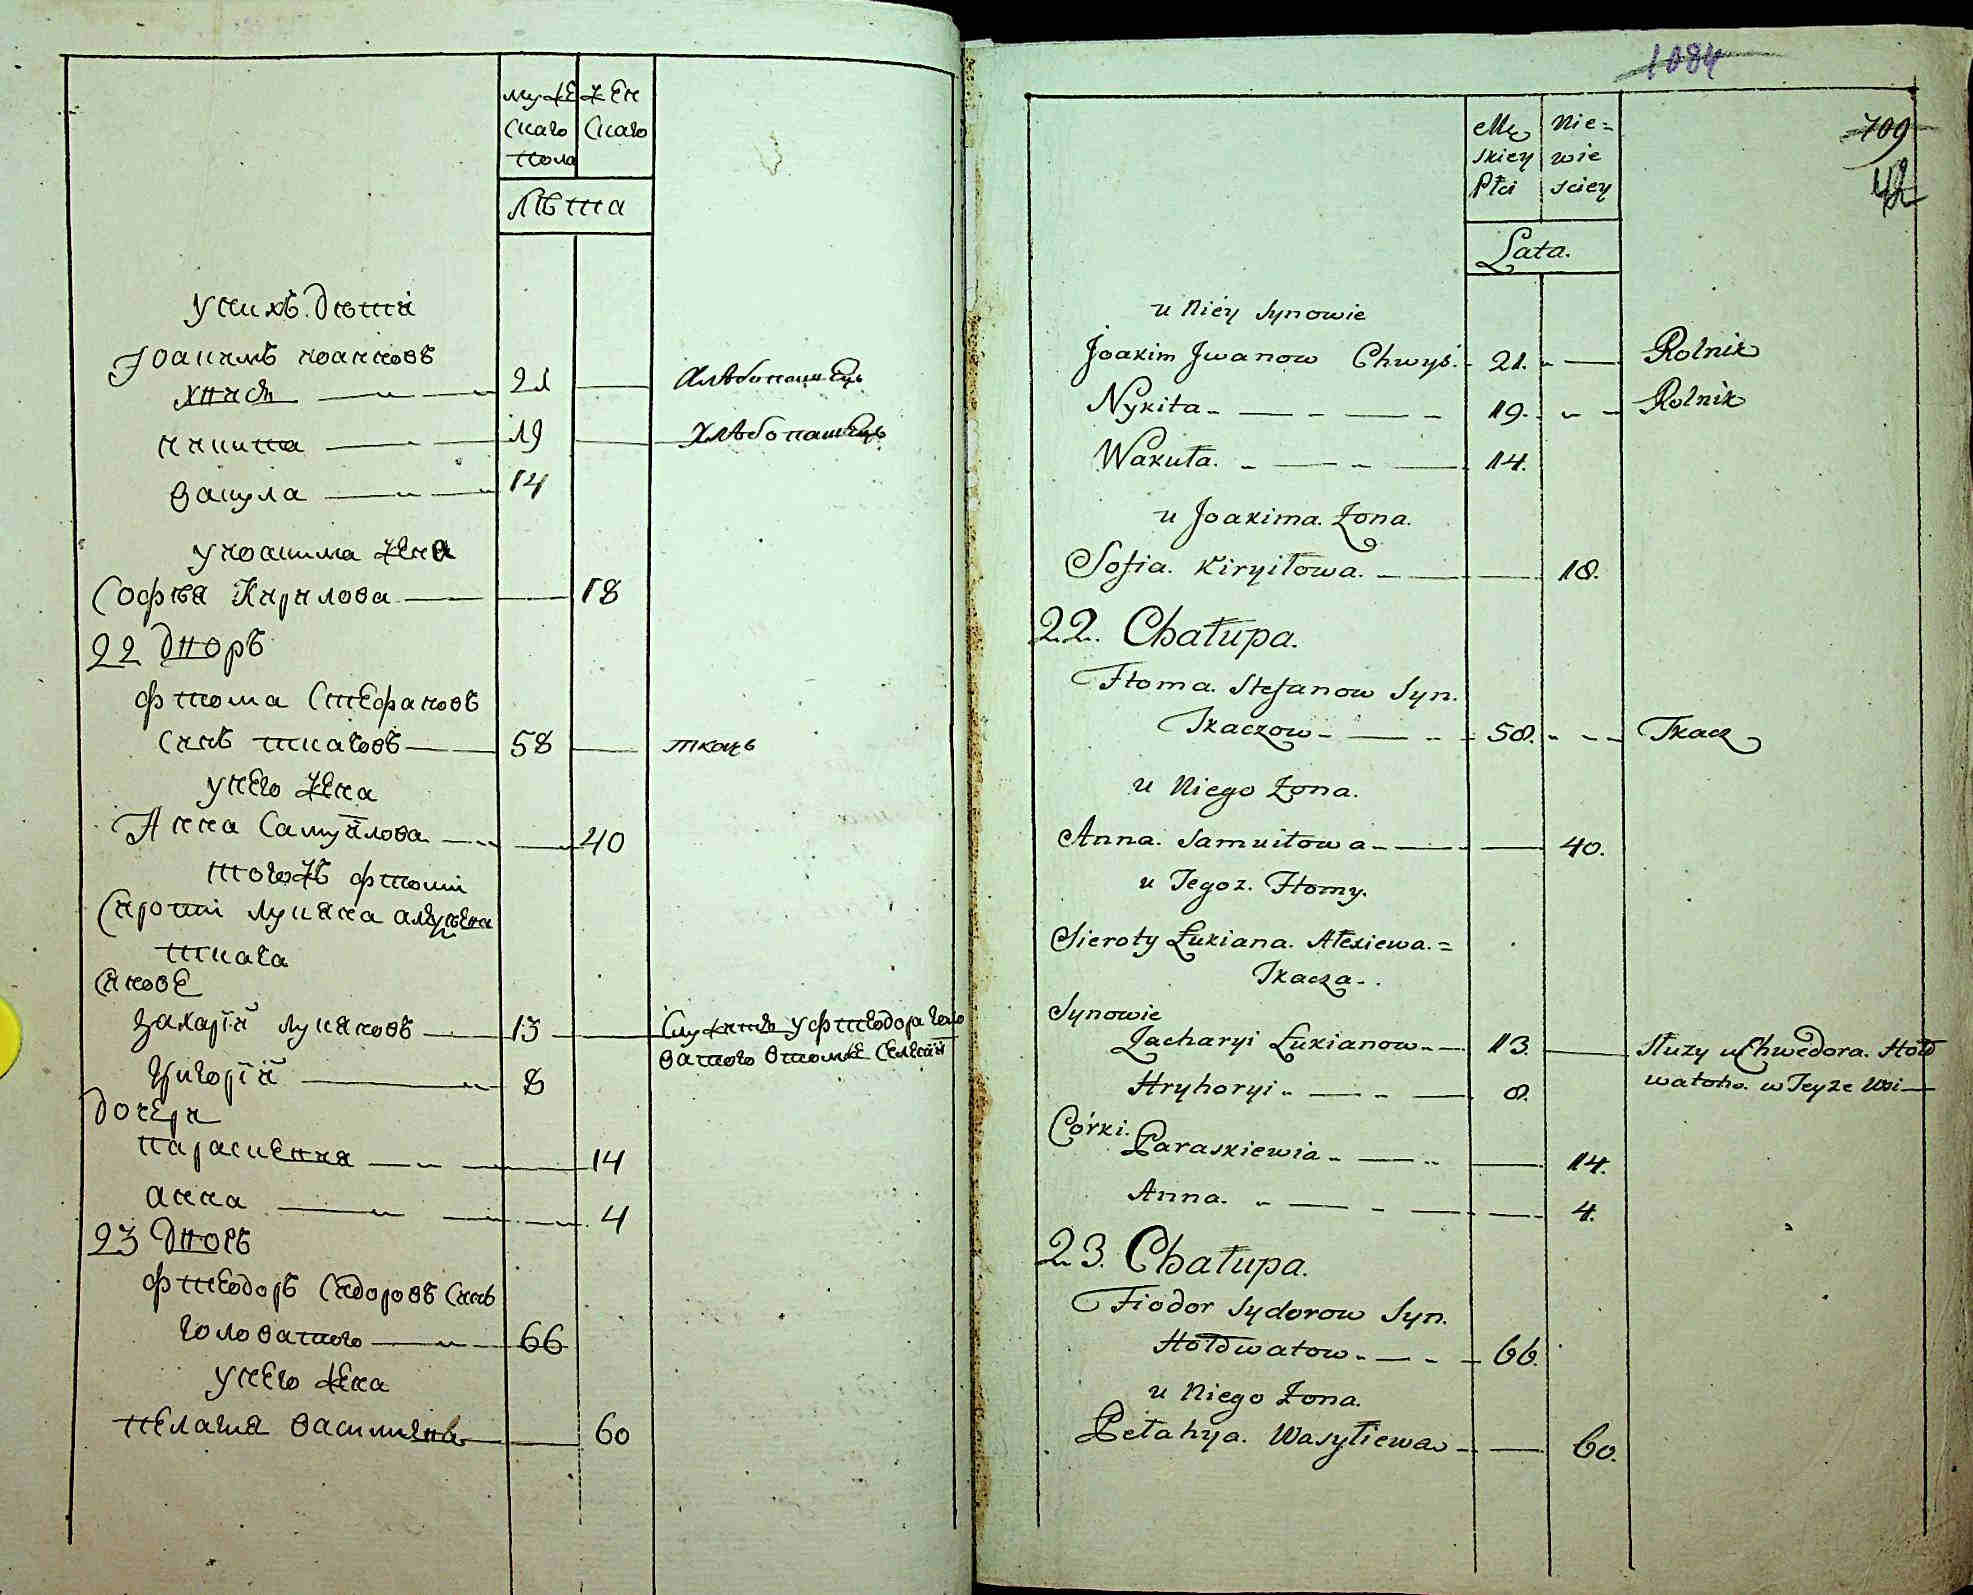 муже
скаго
пола
жен
скаго
лѣта
у них дѣти
Іоакимъ иоанновъ
хвисъ 21 хлѣбопашецъ
никита 19 хлѣбопашецъ
вакула 14
у иоакима жена
Софія Кирилова 18
22 Дворъ
фтома Стефановъ
синъ ткачовъ 58 ткачь
у него жена
Анна Самуйлова 40
тогожъ фтоми
Сироти лукяна алексѣева
ткача
Синове
Захарій лукяновъ 13 Служитъ у фтеодора голо
ватого втомже селеніи
Григорій 8
Дочери
параскевия 14
анна 4
23 Дворъ
фтеодоръ Сидоровъ Синъ
головатого 66
у него жена
пелагия василиева 60
1084
709
42
Mę
skiey
Płci
Nie=
wie
sciey
Lata.
u Niéy Synowie
Joakim Jwanow Chwyś. 21. Rolnik
Nykita 19. Rolnik
Wakuła. 14.
u Joakima. Żona.
Sofia. Kiryiłowa. 18.
22. Chałupa.
Ftoma. Stefanow Syn.
Tkaczow 58. Tkacz
u Niego Żona.
Anna. Samuiłowa 40.
u Tegoz. Ftomy.
Sieroty Łukiana. Ałexiewa.=
Tkacza
Synowie
Zacharyi Łukianow 13. Służy u Chwedora. Hoło
watoho. w Teyże Wsi
Hryhoryi 8.
Córki.
Paraskiewia 14.
Anna. 4.
23. Chałupa.
Fiodor Sydorow Syn.
Hołowatow 66.
u Niego Żona.
Pełahya. Wasyliewa 60.